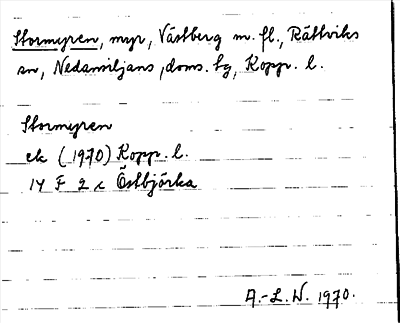 Stormyren, myr, Västberg m. fl., Rättviks
sn, Nedansiljans, doms. tg, Kopp. l.
Stormyren
ek (1970) Kopp. l.
14 F 2 c Östbjörka
A.-L. W. 1970.